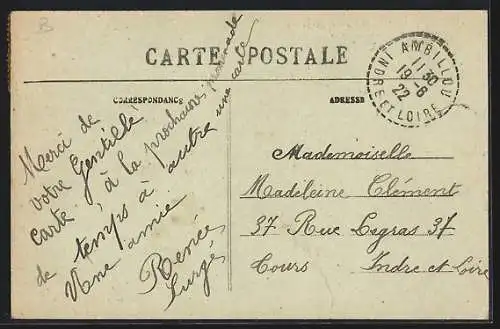 B
CARTE POSTALE
CORRESPONDANCE
ADRESSE
AMBILLOU
11 30
19-6
22
INDRE ET LOIRE
Merci de
votre Gentille
carte, à la prochaine promenade
de temps à autre une carte
Une amie
Renée
Mademoiselle
Madeleine Clément
37 Rue Legras 37
Tours Indre et Loire